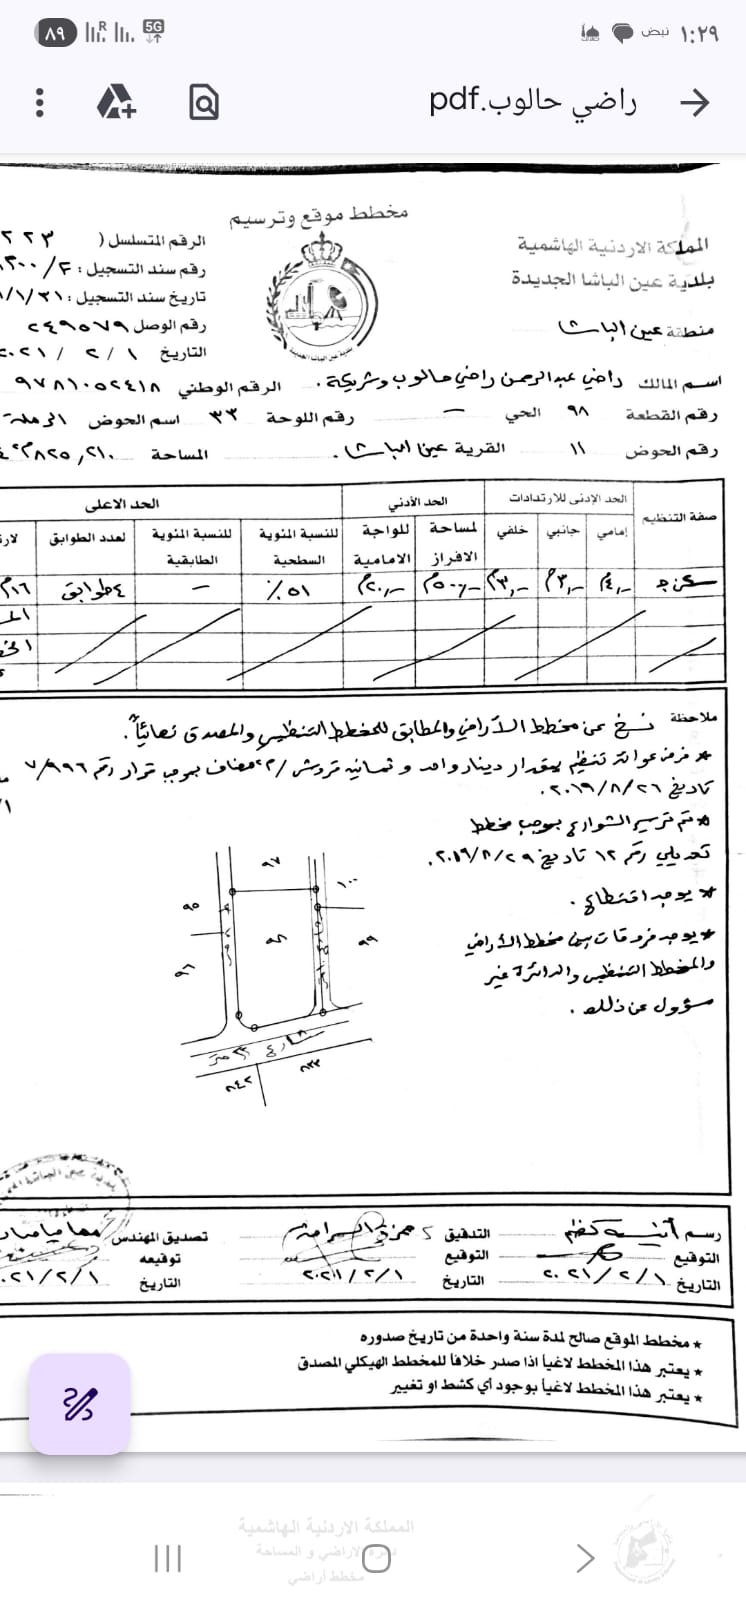 ١:٢٩ نبض 5G R ٨٩
راضي حالوب.pdf
مخطط موقع وترسيم
المملكة الاردنية الهاشمية
بلدية عين الباشا الجديدة
منطقة عين الباشا
الرقم المتسلسل ( ٢٢٣
رقم سند التسجيل :
تاريخ سند التسجيل : ١/١/٣١
رقم الوصل ٢٤٩٥٧٩
التاريخ ١ / ٢ / ٢٠٢١
اسم المالك راضي عبدالرحمن راضي حالوب وشريكه . الرقم الوطني ٩٧٨١٠٥٢٤١٨
رقم القطعة ٩٨ الحي — رقم اللوحة ٣٣ اسم الحوض الرملة
رقم الحوض ١١ القرية عين الباشا . المساحة ٨٢٥,٢١٠م٢
صفة التنظيم الحد الإدنى للارتدادات الحد الأدني الحد الاعلى
إمامي جانبي خلفي لمساحة الافراز للواجة الامامية للنسبة المئوية السطحية للنسبة المئوية الطابقية لعدد الطوابق
سكن ج ٤,- م٣,- م٣,- م٥٠٠,- م٢٠,- ٥١٪ — ٤طوابق م١٦
ملاحظة نسخ عن مخطط الأراضي والمطابق للمخطط التنظيمي والمصدق نهائياً .
* فرض عوائد تنظيم بمقدار دينار واحد و ثمانية قروش /م٢ مضاف بموجب قرار رقم ٧/٩٩٦
تاريخ ٢٠١٩/٨/٢٦ .
* تم ترسيم الشوارع بموجب مخطط
تعديلي رقم ١٢ تاريخ ٢٠١٩/٨/٢٩ .
* يوجد اقتطاع .
* يوجد فروقات بين مخطط الأراضي
والمخطط التنظيمي والدائرة غير
مسؤول عن ذلك .
٩٧
١٠٠
٩٥
٩٨
٩٩
٩٦
شارع متر
٨٤٢
رسم التدقيق تصديق المهندس
التوقيع التوقيع توقيعه
التاريخ ٢٠٢١/٢/١ التاريخ ٢٠٢١/٢/١ التاريخ ٠٢١/٢/١
* مخطط الموقع صالح لمدة سنة واحدة من تاريخ صدوره
* يعتبر هذا المخطط لاغياً اذا صدر خلافاً للمخطط الهيكلي المصدق
* يعتبر هذا المخطط لاغياً بوجود أي كشط او تغيير
المملكة الاردنية الهاشمية
دائرة الاراضي و المساحة
مخطط أراضي